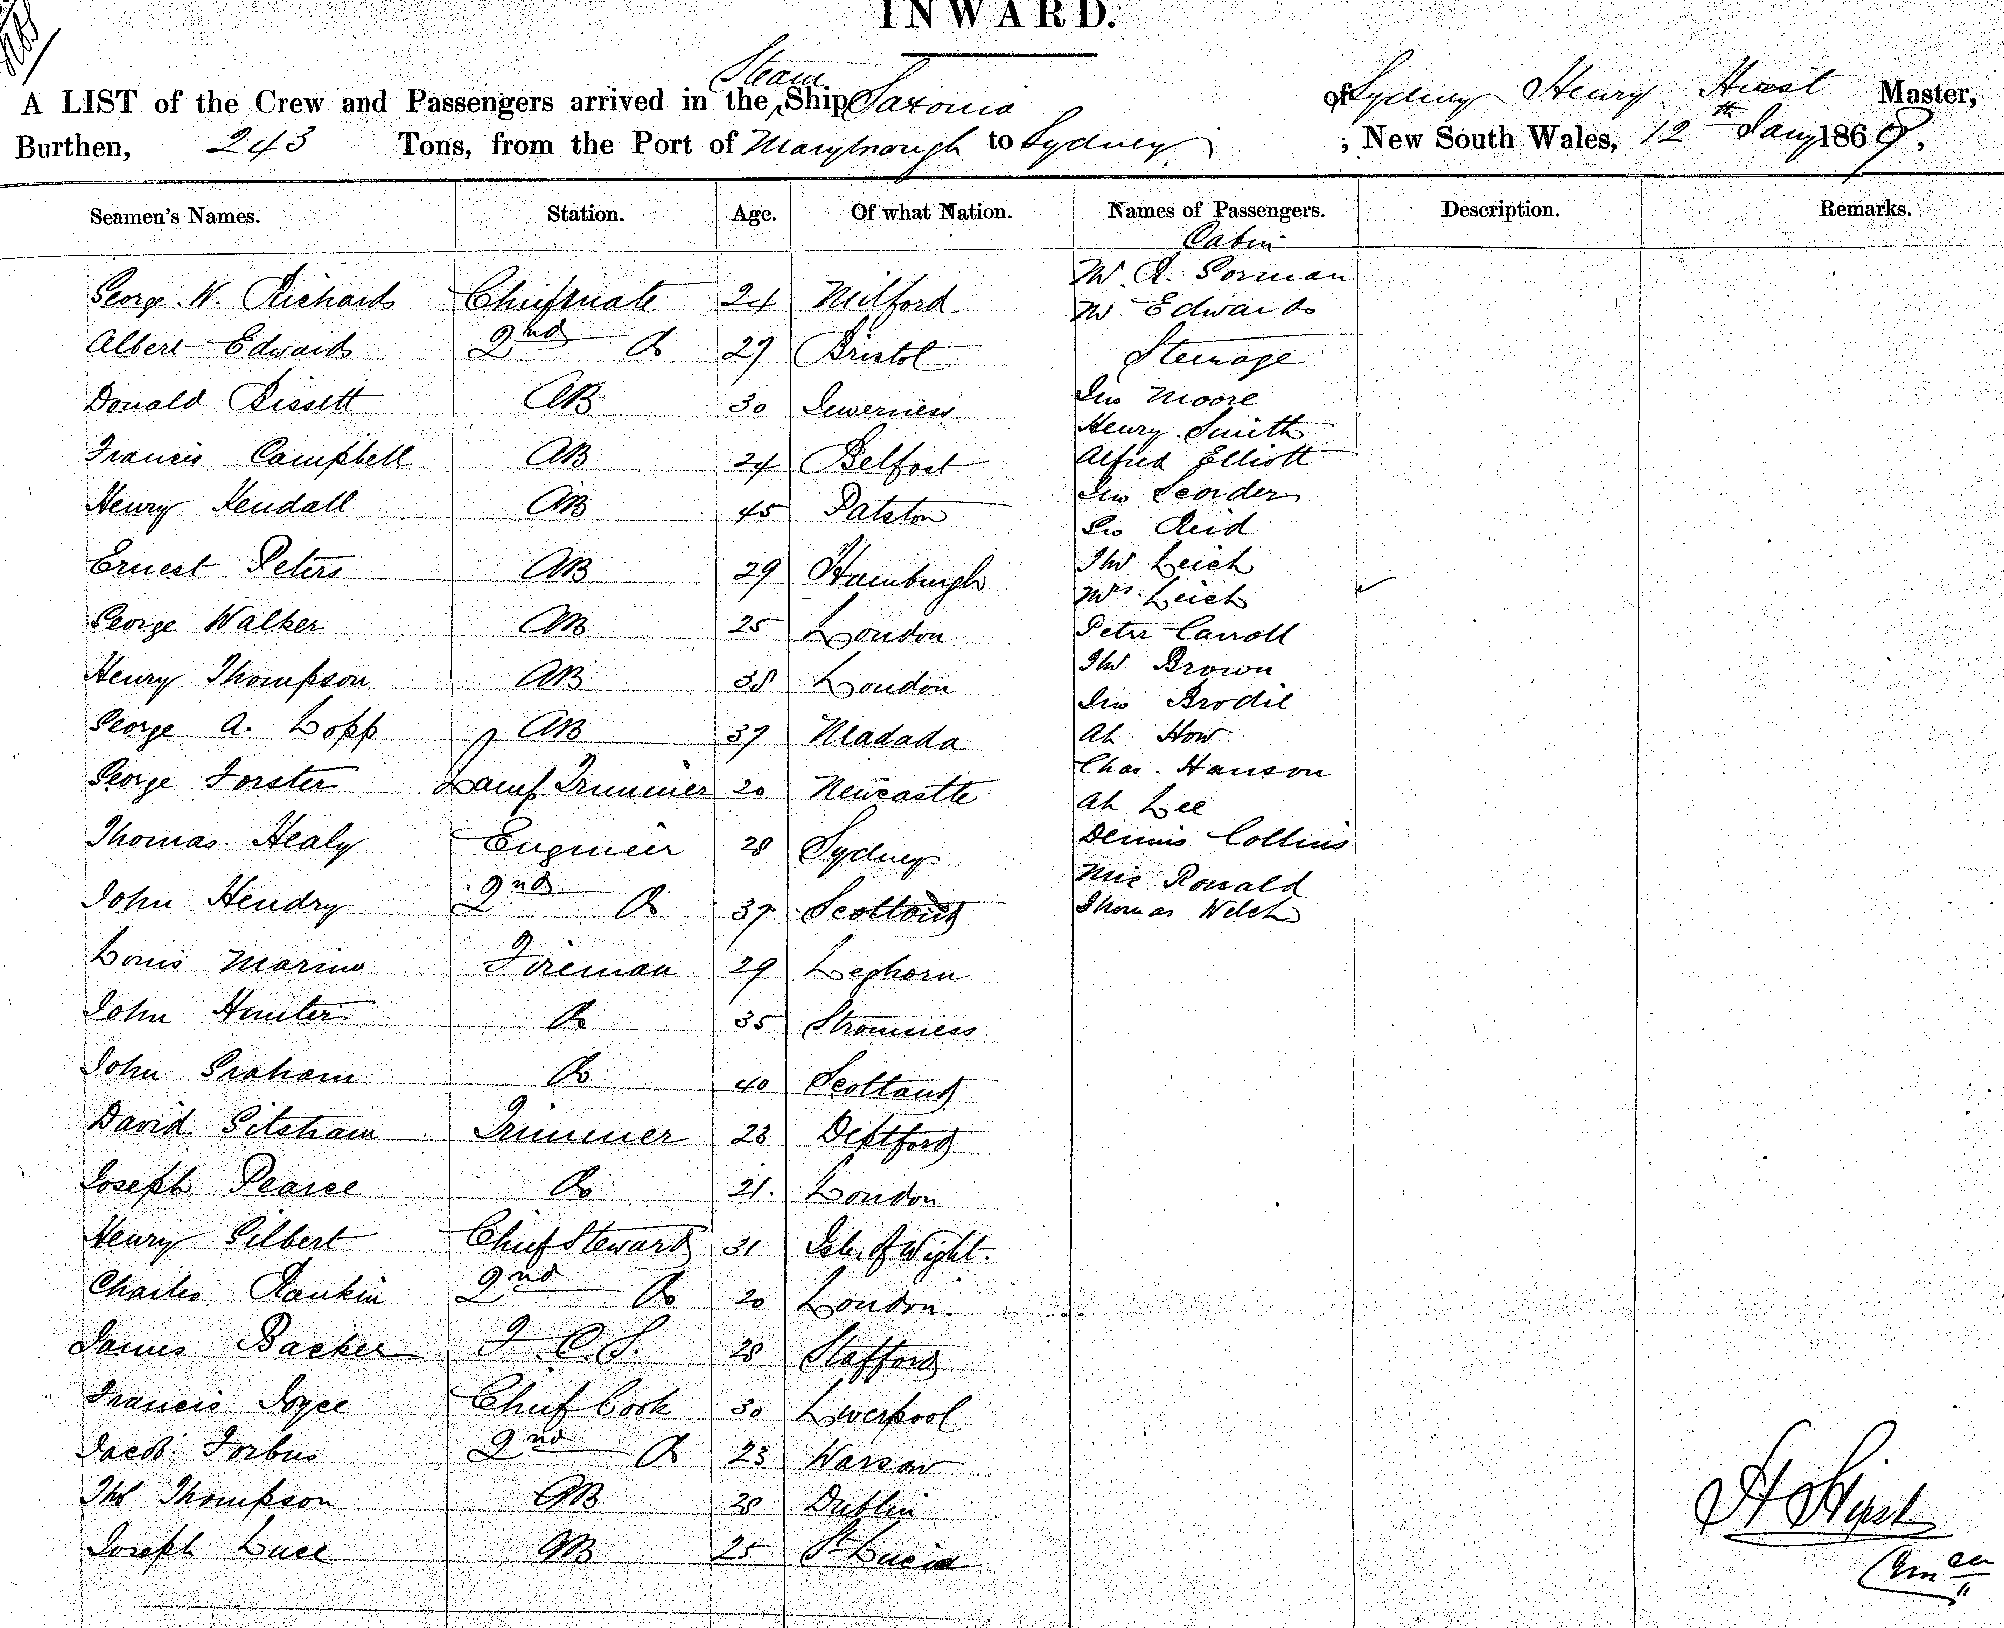 INWARD.
A LIST of the Crew and Passengers arrived in the Steam Ship Saxonia of Sydney Henry Hirst Master,
Burthen, 243 Tons, from the Port of Maryborough to Sydney ; New South Wales, 12th Jany 1869,
Seamen's Names. Station. Age. Of what Nation. Names of Passengers. Description. Remarks.
Cabin
George W. Richards Chief mate 24 Milford
Albert Edwards 2nd Do 29 Bristol
Donald Bissett AB 30 Inverness
Francis Campbell AB 24 Belfast
Henry Kendall AB 45 Patston
Ernest Peters AB 29 Hamburgh
George Walker AB 25 London
Henry Thompson AB 38 London
George A. Lopp AB 37 Neadada
George Forster Lamp Trimmer 20 Newcastle
Thomas Healy Engineer 28 Sydney
John Hendry 2nd Do 37 Scotland
Louis Marino Fireman 29 Leghorn
John Hunter Do 35 Stromness
John Graham Do 40 Scotland
David Gitsham Trimmer 23 Deptford
Joseph Pearce Do 21. London
Henry Gilbert Chief Steward 31 Isle of Wight.
Charles Rankin 2nd Do 20 London
James Backer F. C. S. 28 Stafford
Francis Joyce Chief Cook 30 Liverpool
Jacob Forbus 2nd Do 23 Warsaw
Ths Thompson AB 28 Dublin
Joseph Luce AB 25 St Lucia
Mr. R. Gorman
Mr Edwards
Steerage
Jno Moore
Henry Smith
Alfred Elliott
Jno
Geo Reid
Ths Leich
Mrs. Leich
Peter Carroll
Ths Brown
Jno Brodie
Ah How
Chas. Hanson
Ah Lee
Dennis Collins
Ronald
Thomas Welch
H Hirst